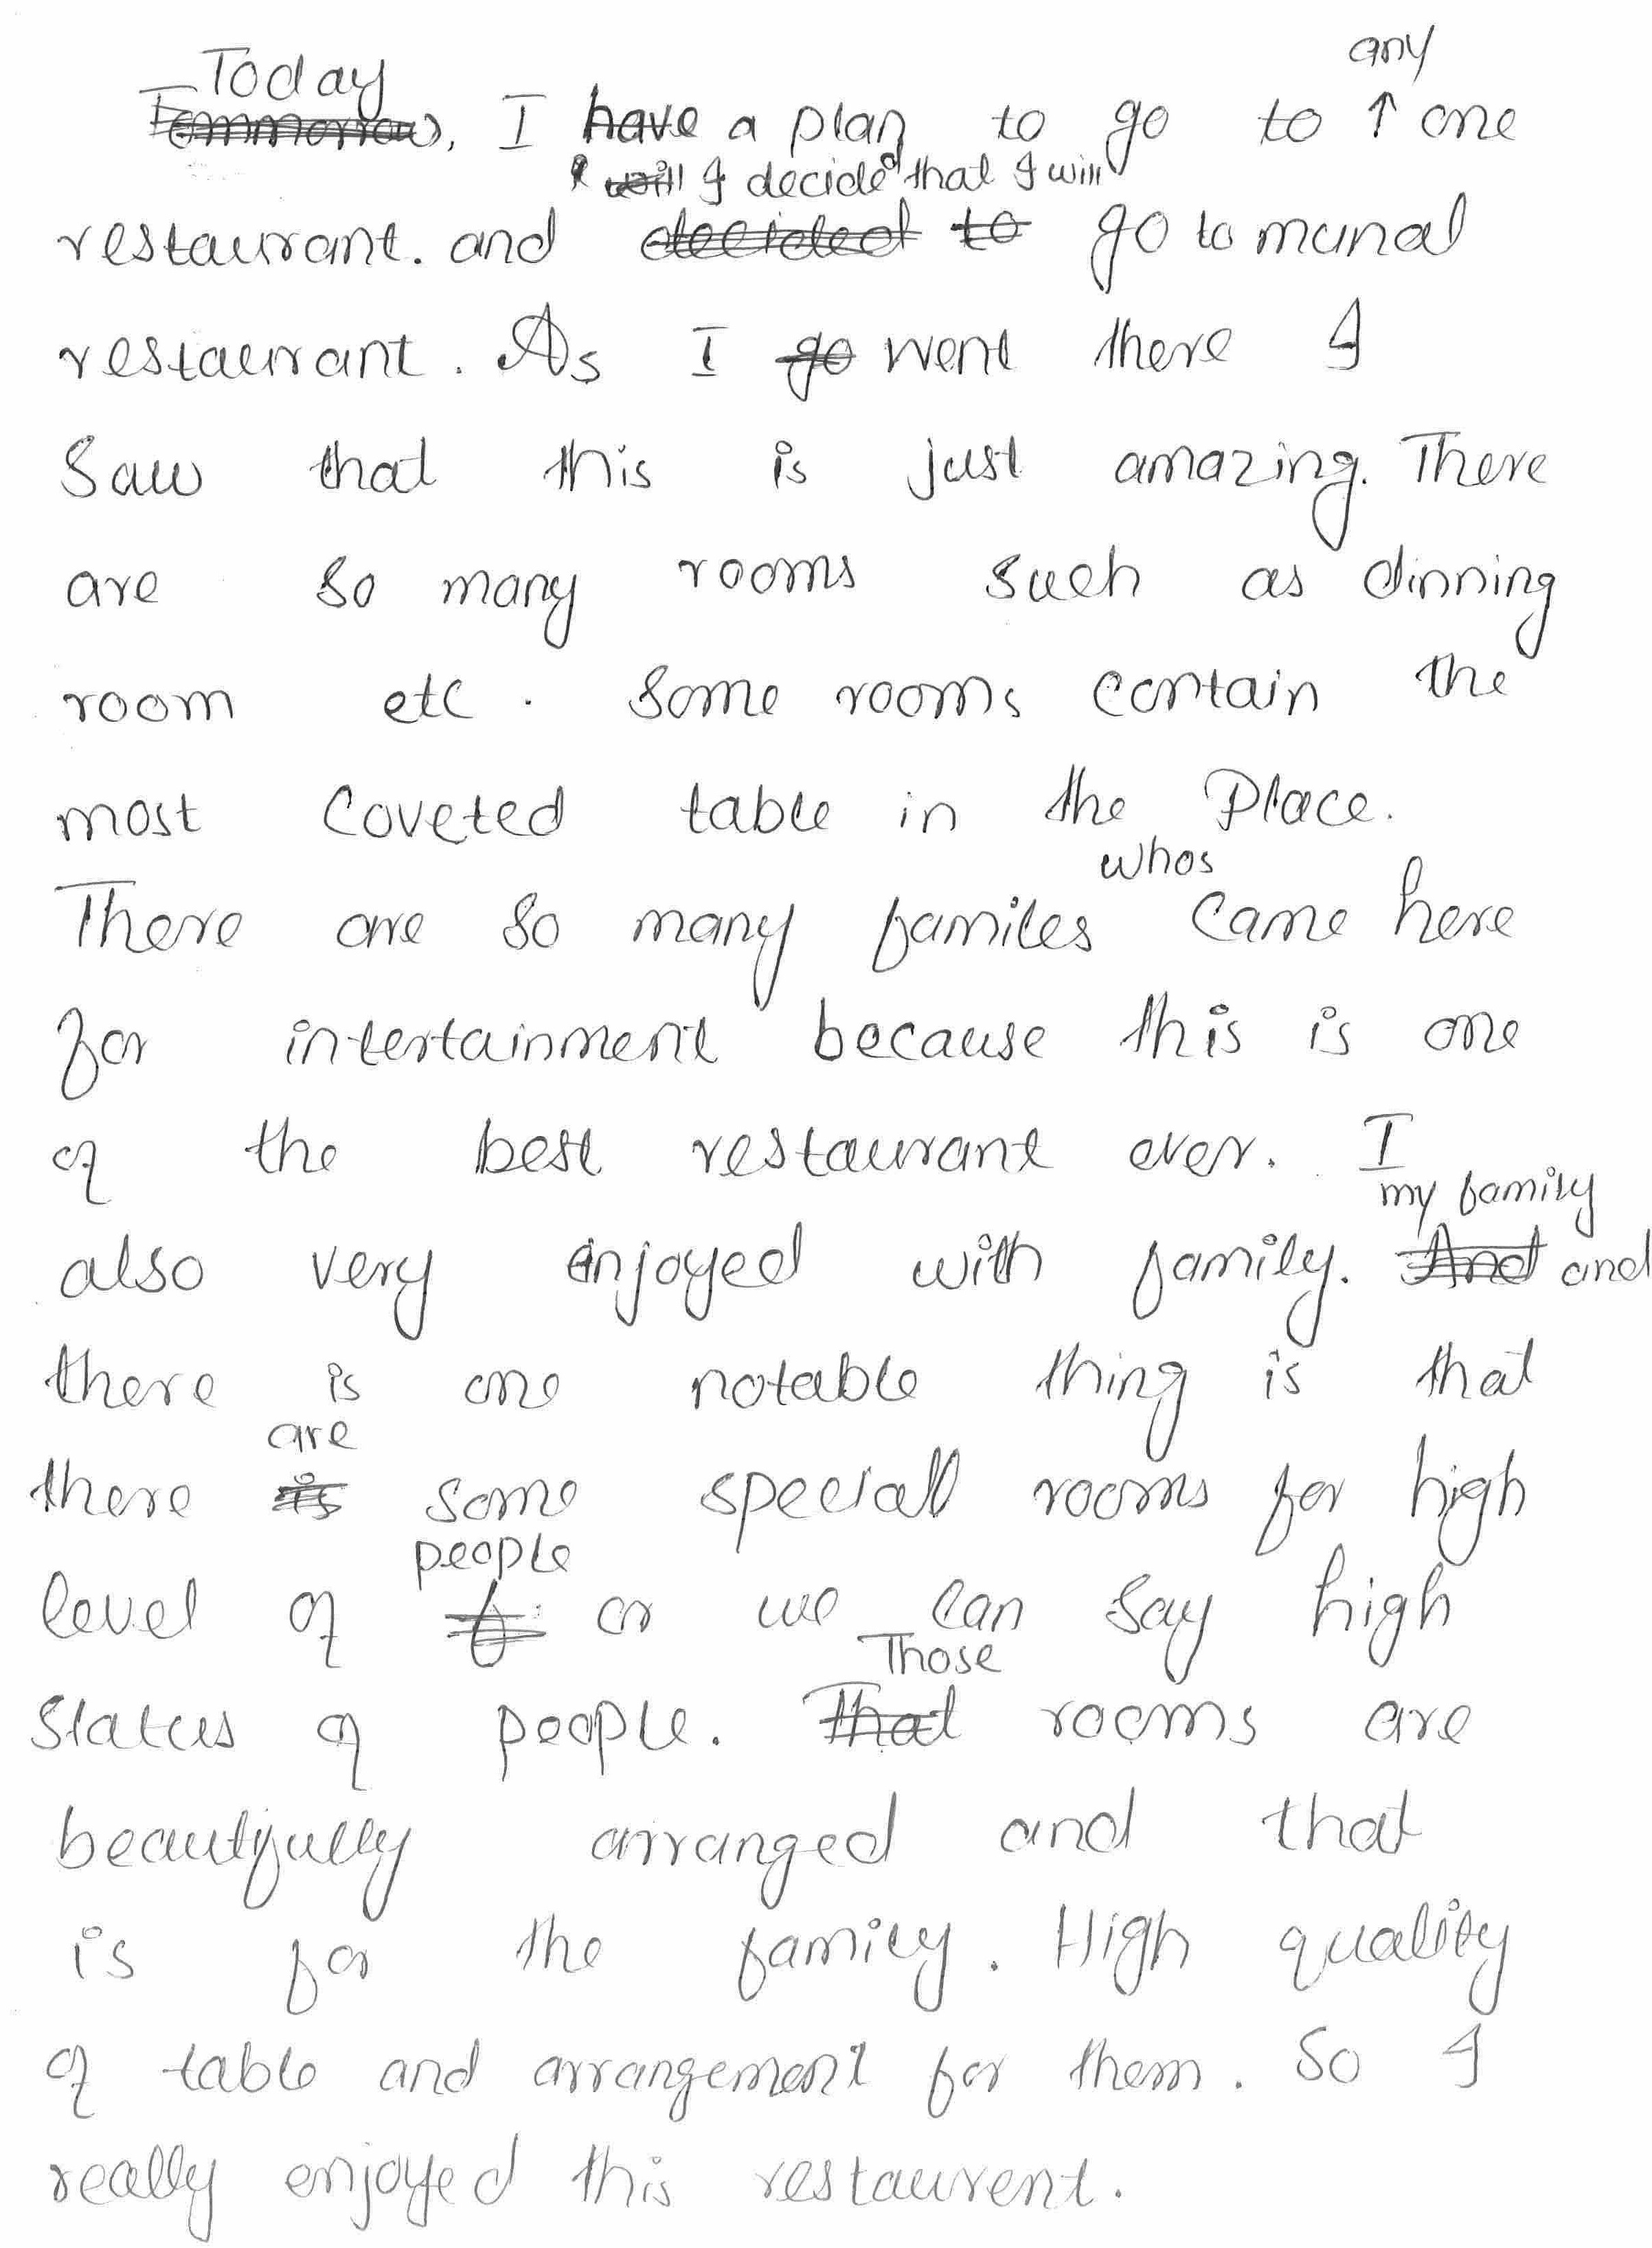 Today any
Tommorrow, I have a plan to go to ↑ one
I will I decided that I will
restaurant. and decided to go to munal
restaurant. As I go went there I
Saw that this is just amazing. There
are so many rooms such as dinning
room etc. Some rooms contain the
most Coveted table in the Place.
whos
There are so many familes came here
for intertainment because this is one
of the best restaurant ever. I
my family
also very enjoyed with family. And and
there is one notable thing is that
are
there is some speciall rooms for high
people
level of or we can say high
Those
Status of people. That rooms are
beautifully arranged and that
is for the family. High quality
of table and arrangement for them. So I
really enjoyed this restaurent.